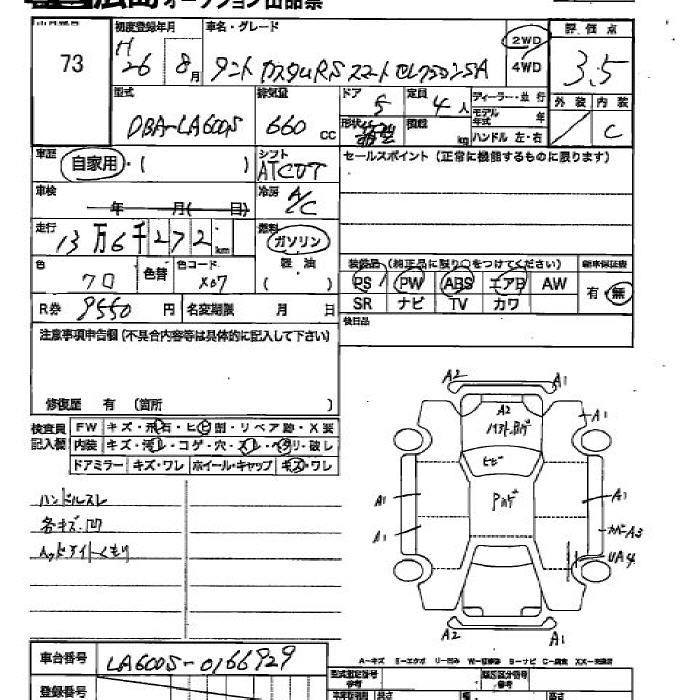 広島 オークション出品票
73
初度登録年月
H
26 8月
車名・グレード
タント カスタムRS スマートセレクションSA
2WD
4WD
評価点
3.5
型式
DBA-LA600S
排気量
660 cc
ドア 5
定員 4人
ディーラー・並行
モデル年式 年
形状
積載 kg
ハンドル 左・右
外装 内装
C
車歴
自家用・( )
シフト
ATCVT
セールスポイント (正常に機能するものに限ります)
車検
年 月( 日)
冷房
A/C
走行
13万6千272km
燃料
ガソリン
軽油
( )
色
クロ
色替
色コード
X07
装備品 (純正品に限り○をつけてください)
新車保証書
PS PW ABS エアB AW
有・無
SR ナビ TV カワ
R券 9550円
名変期限 月 日
後日品
注意事項申告欄 (不具合内容等は具体的に記入して下さい)
修復歴 有 (箇所 )
検査員記入欄
FW キズ・飛石・ヒビ割・リペア跡・X要
内装 キズ・汚レ・コゲ・穴・スレ・ヘタリ・破レ
ドアミラー キズ・ワレ ホイール・キャップ キズ・ワレ
ハンドルスレ
各キズ・凹
ヘッドライトくもり
A2 A1
A2
A1
ヒビ
A1
A1
A1
カバーA3
UA4
A2
A1
車台番号
LA600S-0166929
登録番号
A-キズ E-エクボ U-凹み W-板修み B-ナビ C-腐食 XX-交換済
型式指定番号
参考
類別区分番号
参考
長さ
幅
高さ